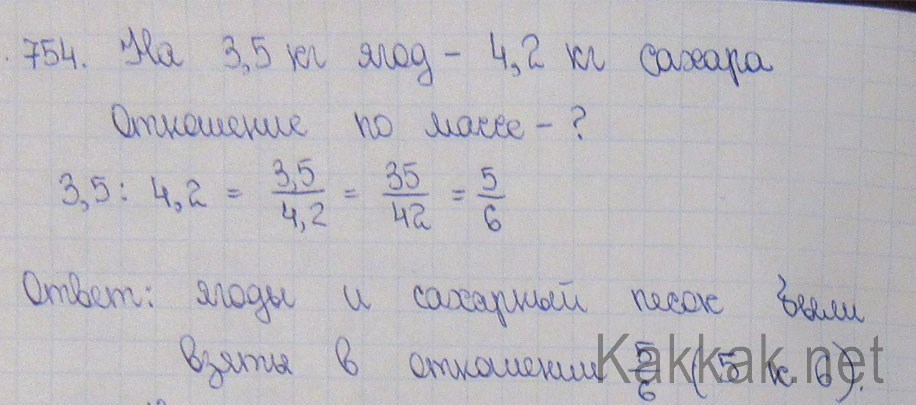 754. На 3,5 кг ягод - 4,2 кг сахара
Отношение по массе - ?
3,5 : 4,2 = 3,5/4,2 = 35/42 = 5/6
Ответ: ягоды и сахарный песок были
взяты в отношении 5/6 (5 к 6).
Kakkak.net